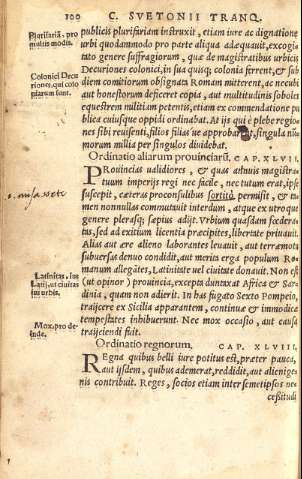 100 C. SVETONII TRANQ.
Plurifariā, pro multis modis.
publicis plurifariam instruxit, etiam iure ac dignatione
urbi quodammodo pro parte aliqua adæquauit, excogita
to genere suffragiorum, quæ de magistratibus urbicis
Decuriones colonici, in sua quisq; colonia ferrent, & sub
Coloni Decuriones, qui compilarum sunt.
diem comitiorum obsignata Romam mitterent, ac necubi
aut honestorum deficeret copia, aut multitudinis soboles,
equestrem militiam petentis, etiam ex commendatione pu
blica cuiusque oppidi ordinabat. At ijs qui è plebe regio-
nes sibi reuisenti, filios filias ue approbarent, singula num
morum millia per singulos diuidebat.
Ordinatio aliarum prouinciarū. CAP. XLVII.
PRouincias ualidiores, & quas annuis magistra-
tuum imperijs regi nec facile, nec tutum erat, ipse
suscepit, cæteras proconsulibus sortitò permisit, & ta
men nonnullas commutauit interdum, atque ex utroque
genere plerasq; sæpius adijt. Vrbium quasdam fœdera-
tas, sed ad exitium licentia præcipites, libertate priuauit.
Alias aut ære alieno laborantes leuauit, aut terræmotu
subuersas denuo condidit, aut merita erga populum Ro-
manum allegātes, Latinitate uel ciuitate donauit. Non est
Latinitas, ius Latij, ut ciuitas ius urbis.
(ut opinor) prouincia, excepta duntaxat Africa & Sar-
dinia, quam non adierit. In has fugato Sexto Pompeio,
traijcere ex Sicilia apparantem, continuæ & immodicæ
tempestates inhibuerunt. Nec mox occasio, aut causa
Mox, pro deinde.
traijciendi fuit.
Ordinatio regnorum. CAP. XLVIII.
REgna quibus belli iure potitus est, præter pauca,
aut ijsdem, quibus ademerat, reddidit, aut alienige-
nis contribuit. Reges, socios etiam inter semetipsos ne-
cessitudi